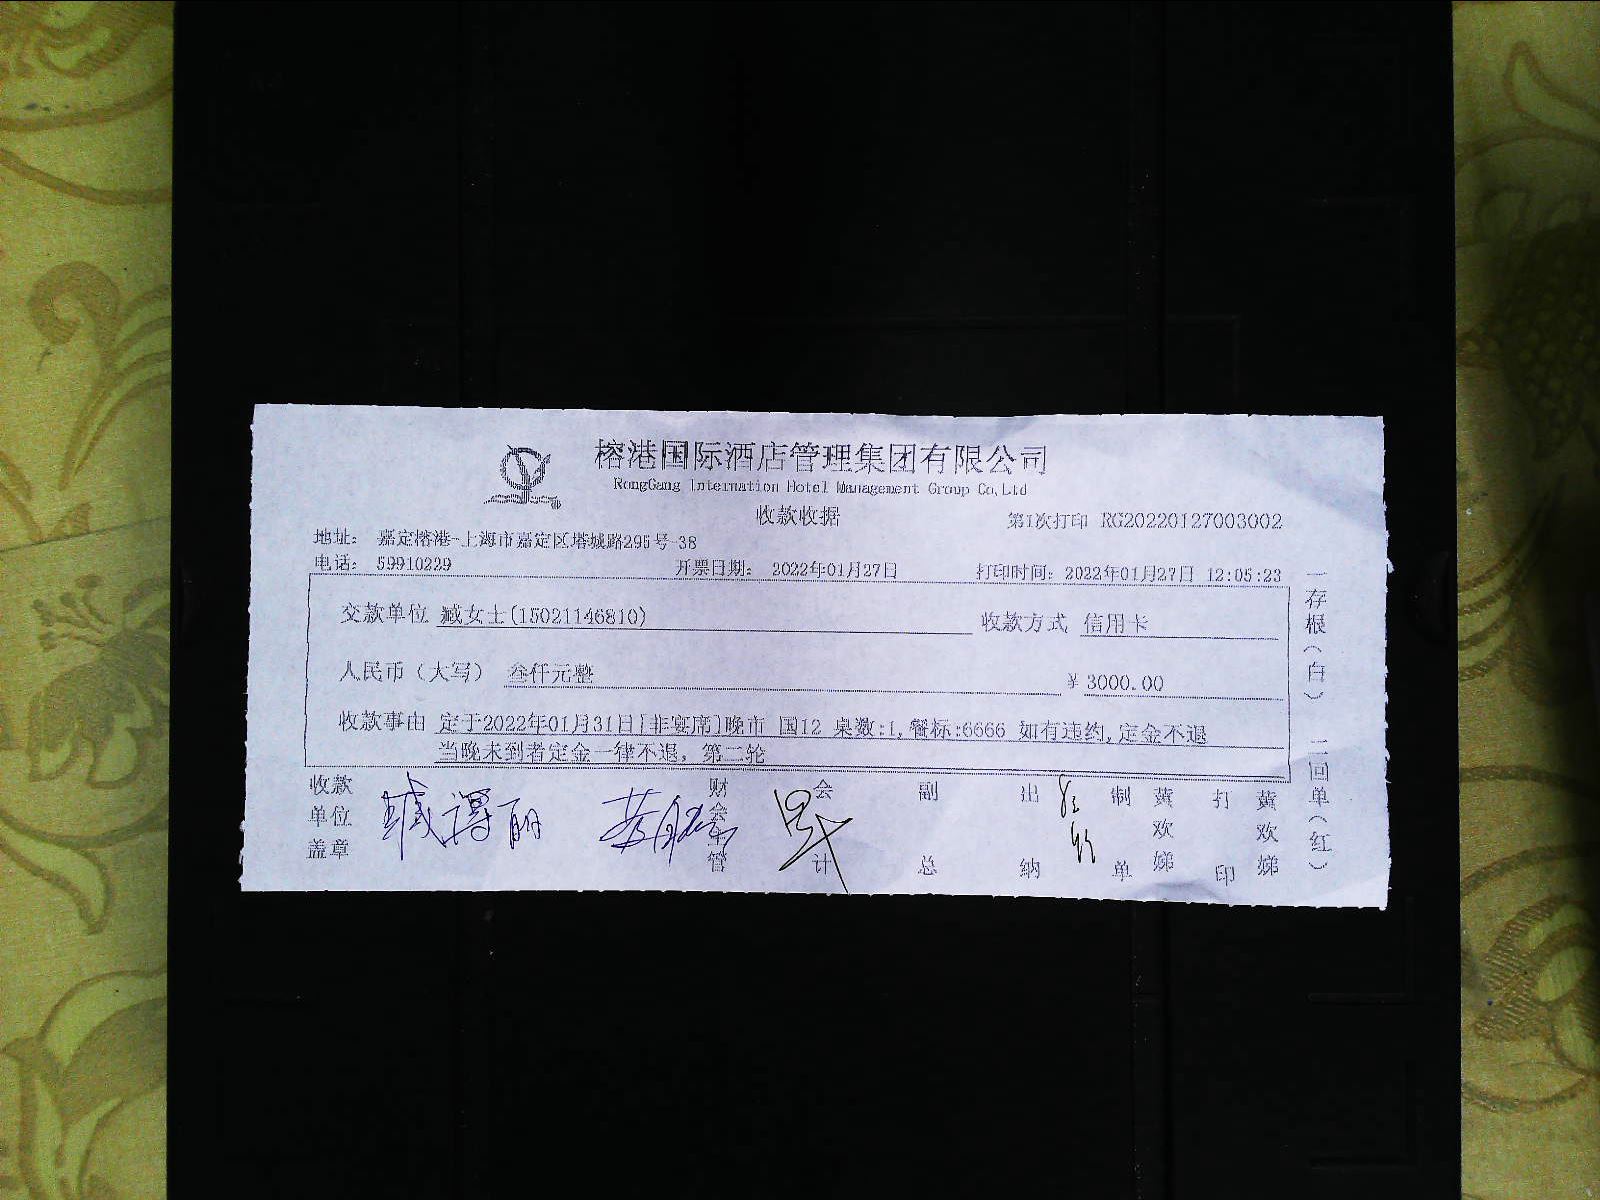 榕港国际酒店管理集团有限公司
RongGang Internation Hotel Management Group Co,Ltd
收款收据
第1次打印 RG20220127003002
地址： 嘉定榕港-上海市嘉定区塔城路295号-38
电话： 59910229 开票日期： 2022年01月27日 打印时间：2022年01月27日 12:05:23
交款单位 臧女士(15021146810) 收款方式 信用卡
人民币（大写） 叁仟元整 ¥ 3000.00
收款事由 定于2022年01月31日[非宴席]晚市 国12 桌数:1,餐标:6666 如有违约,定金不退
当晚未到者定金一律不退，第二轮
收款单位盖章 财会主管 会计 副总 出纳 制单 黄欢娣 打印 黄欢娣
一存根（白） 二回单（红）